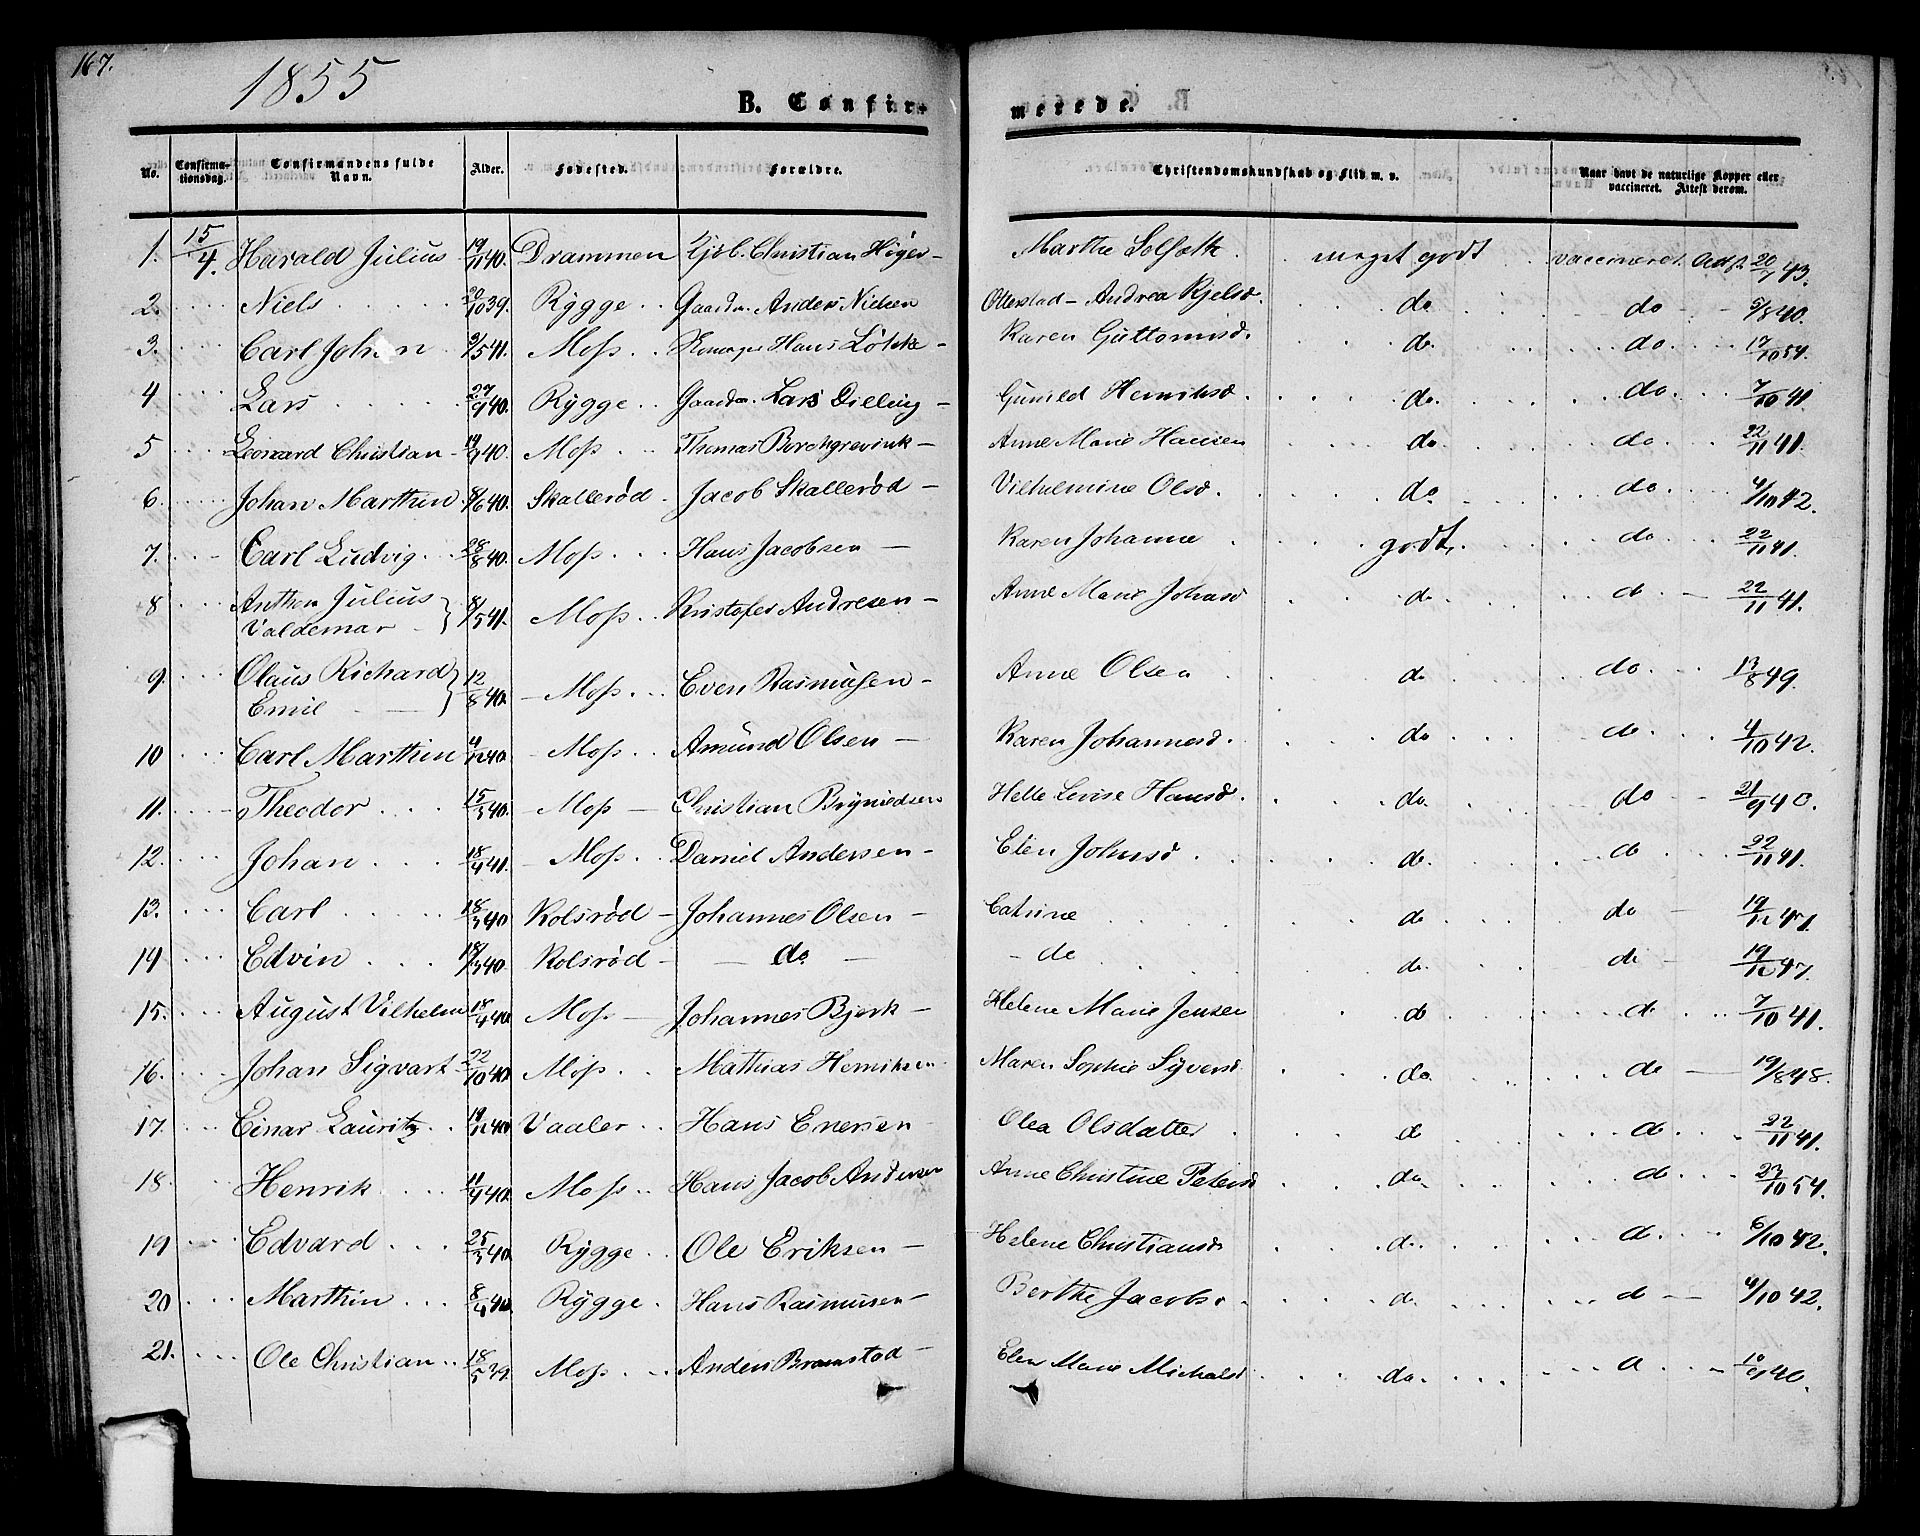 167.
1855
B. Confir- merede.
No. Confirmationsdag. Confirmandens fulde Navn. Alder. Fødested. Forældre. Christendomskundskab og Flid m. v. Naar havt de naturlige Kopper eller vaccineret. Attest derom.
1. 15/4. Harald Julius 19/11 40. Drammen Kjøb. Christian Höyer - Marthe Solfælt. meget godt vaccineret. Att. 20/7 43.
2. Niels 20/10 39. Rygge Gaardm. Anders Nielsen Ollestad - Andrea Kjelsd. do do 5/8 40.
3. Carl Johan 9/5 41. Moss Hans Lökke - Karen Guttormsd. do. do 17/10 54.
4 Lars 27/9 40. Rygge Gaardm. Lars Dilling - Gunild Henriksd. do. do. 7/10 41.
5 Leonard Christian 19/9 40. Moss Thomas Borchgrevink - Anne Marie Hansen do do. 22/11 41.
6. Johan Marthin 8/6 40. Skallerød Jacob Skallerød - Vilhelmine Olsd. do do. 4/10 42.
7. Carl Ludvig 28/8 40. Moss Hans Jacobsen - Karen Johanne godt. do 22/11 41.
8 Anthon Julius Valdemar } 8/5 41. Moss Kristofer Andresen - Anne Marie Johnsd do do 22/11 41.
9. Olaus Richard Emil } 12/8 40. - Moss Even Rasmussen - Anne Olsen do do. 13/8 49.
10 Carl Marthin 4/12 40. - Moss Amund Olsen - Karen Johannesd. do do. 4/10 42.
11. Theodor 15/3 40. Moss - Christian Brynildsen Helle Lovise Hansd. do. do 21/9 40.
12. Johan 18/4 41. - Moss Daniel Andersen - Elen Johnsd do. do 22/11 41.
13. Carl 18/3 40 Kolsrød - Johannes Olsen - Catrine do do - 19/12 47.
14 Edvin 18/3 40. Kolsrød - - do. - - do do. do - 19/12 47.
15. August Vilhelm 18/4 40. Moss - Johannes Bjerk - Helene Marie Jensen do do 7/10 41.
16. Johan Sigvart 22/10 40. Moss Mathias Henriksen Maren Sophie Syversd do. do - 19/8 48.
17. Einar Lauritz 19/12 40 Vaaler Hans Enersen - Olea Olsdatter do do 22/11 41.
18. Henrik 11/9 40. Moss Hans Jacob Andersen Anne Christine Petersd do. do 23/10 54.
19 Edvard 25/3 40. Rygge Ole Eriksen - Helene Christiansd do. do 6/10 42.
20 Marthin 8/4 40. Rygge Hans Rasmusen - Berthe Jacobsd do. do - 4/10 42.
21. Ole Christian 18/5 39. Moss Anders Bramstad - Elen Marie Michalsd do d 10/9 40.